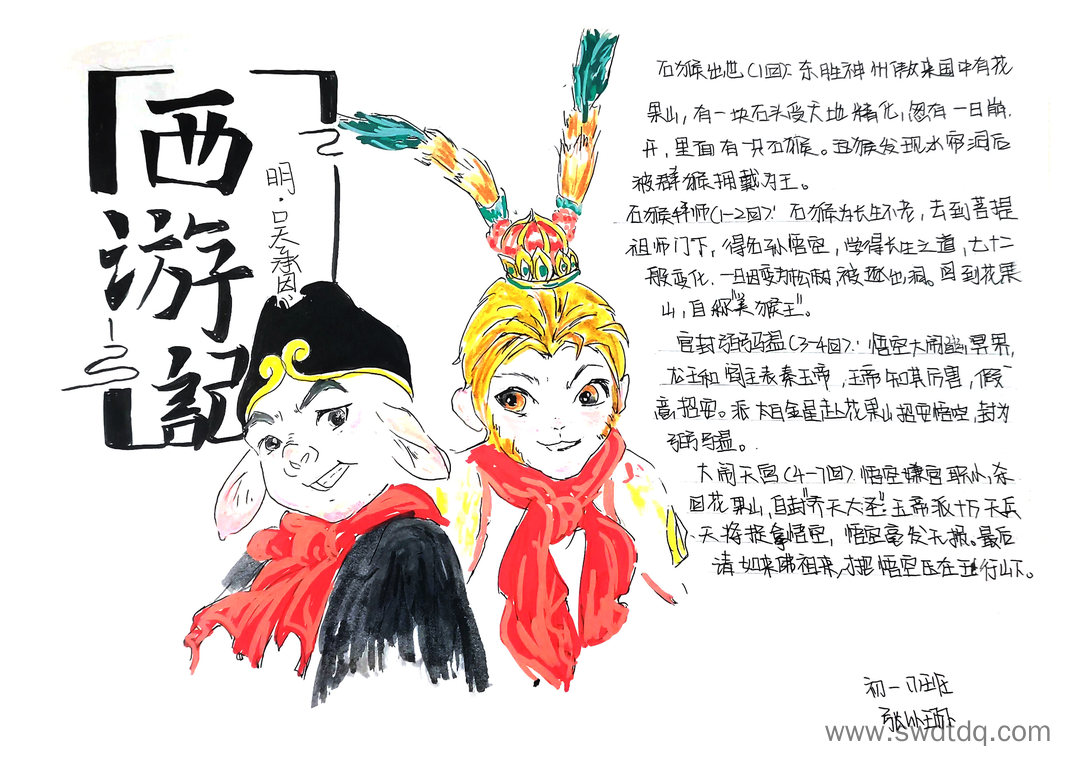 西游記
明·吴承恩
石猴出世(1回): 东胜神州傲来国中有花
果山,有一块石头受天地精化,忽有一日崩
开,里面有一只石猴。五猴发现水帘洞后
被群猴拥戴为王。
石猴拜师(1-2回): 石猴为长生不老,去到菩提
祖师门下,得名孙悟空,学得长生之道,七十二
般变化.一日因变松树,被逐出洞。回到花果
山,自称"美猴王"。
官封弼马温(3-4回): 悟空大闹
龙王和阎王表奏玉帝,玉帝知其厉害,假
意招安。派太白金星赴花果山招安悟空,封为
弼马温。
大闹天宫(4-7回). 悟空嫌官职小,杀
回花果山,自封"齐天大圣"玉帝派十万天兵
天将捉拿悟空,悟空毫发无损。最后
请如来佛祖来,才把悟空压在五行山下。
初一 班
张
www.swdtdq.com